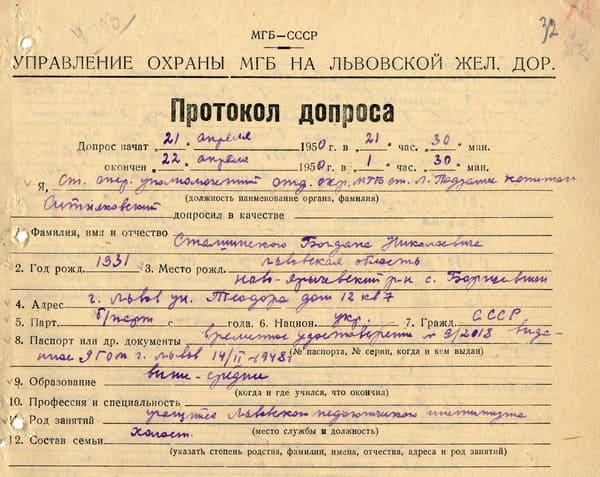 32
МГБ—СССР
УПРАВЛЕНИЕ ОХРАНЫ МГБ НА ЛЬВОВСКОЙ ЖЕЛ. ДОР.
Протокол допроса
Допрос начат 21 апреля 1950 г. в 21 час. 30 мин.
окончен 22 апреля 1950 г. в 1 час. 30 мин.
Я, Ст. опер. уполномоченный отд. окр. МГБ ст. Л. капитан
(должность наименование органа, фамилия)
Ситняковский допросил в качестве
1. Фамилия, имя и отчество Сташинского Богдана Николаевича
2. Год рожд. 1931 3. Место рожд. Львовская область
Ново-Ярычевский р-н с. Борщевичи
4. Адрес г. Львов ул. Теодора дом 12 кв 7
5. Парт. б/парт с года. 6. Национ. укр. 7. Гражд. СССР
8. Паспорт или др. документы временное удостоверение № 9/2018 выда-
нное ЯГОМ г. Львов 14/II-1948г (№ паспорта, № серии, когда и кем выдан)
9. Образование выше-средне
(когда и где учился, что окончил)
10. Профессия и специальность
11. Род занятий учащийся Львовского педагогического института
(место службы и должность)
12. Состав семьи холост.
(указать степень родства, фамилии, имена, отчества, адреса и род занятий)